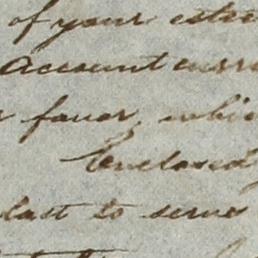 of your estee
Account curr
favor, whic
Enclosed
last to serve